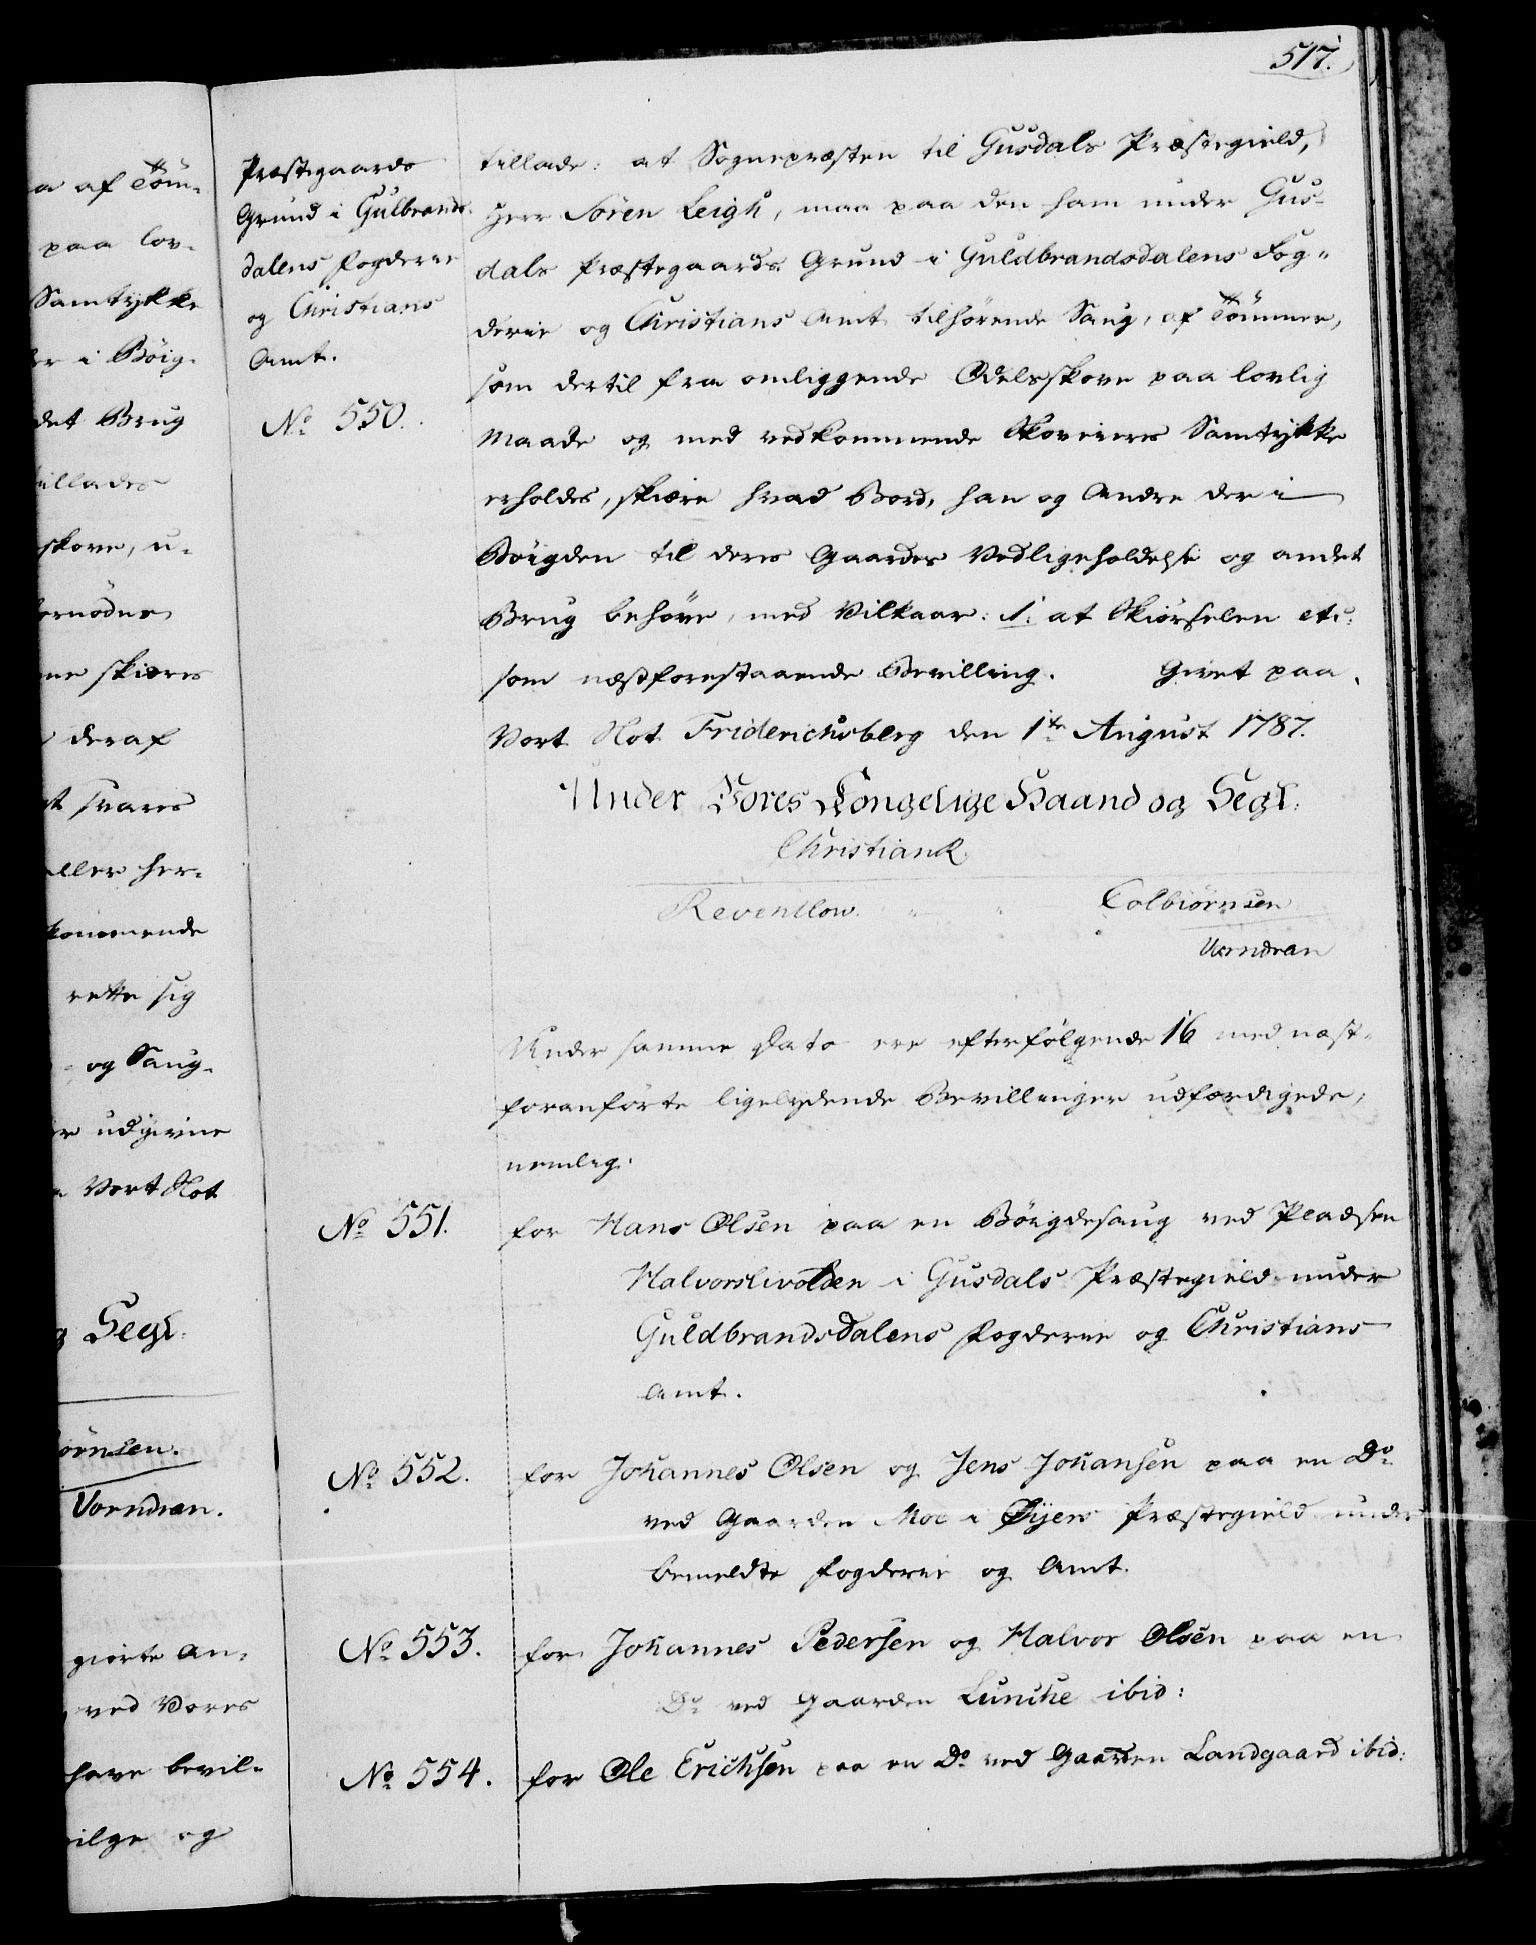 517.
a af Töm-
paa lov-
Samtykke
er i Böig-
det Brug
tillades
skove, u-
fornödne
ne skiæres
deraf
st svares
eller her-
kommende
rette sig
og Saug-
er udgivne
Vort Slot
g Segl:
örnsen.
Vorndran.
giorte An-
ved Vores
have bevil-
ilge og
Præstegaards
Grund i Gulbrands-
dalens Fogderie
og Christians
Amt.
No 550.
tillade: at Sognepræsten til Gusdals Præstegield,
Herr Sören Leigh, maa paa den ham under Gus-
dals Præstegaards Grund i Guldbrandsdalens Fog-
derie og Christians Amt tilhörende Saug, af Tömmer,
som dertil fra omliggende Odelsskove paa lovlig
Maade og med vedkommende Skoveieres Samtykke
erholdes, skiære hvad Bord, han og Andre der i
Böigden til deres Gaardes Vedligeholdelse og andet
Brug behöve, med Vilkaar: 1. at Skiörselen etc:
som næstforestaaende Bevilling. Givet paa
Vort Slot Friderichsberg den 1te August 1787.
Under Vores Kongelige Haand og Segl:
Christian R.
Reventlow. Colbiörnsen
Vorndran
Under samme Dato ere efterfölgende 16 med næst-
foranförte ligelydende Bevillinger udfærdigede,
nemlig:
No 551. for Hans Olsen paa en Böigdesaug ved Pladsen
Halvorslivolden i Gusdals Præstegield under
Guldbrandsdalens Fogderie og Christians
Amt.
No 552. for Johannes Olsen og Jens Johansen paa en Do
ved Gaarden Moe i Öyers Præstegield under
bemeldte Fogderie og Amt.
No 553. for Johannes Pedersen og Halvor Olsen paa en
Do ved Gaarden Lunche ibid:
No 554. for Ole Erichsen paa en Do ved Gaarden Landgaard ibid: